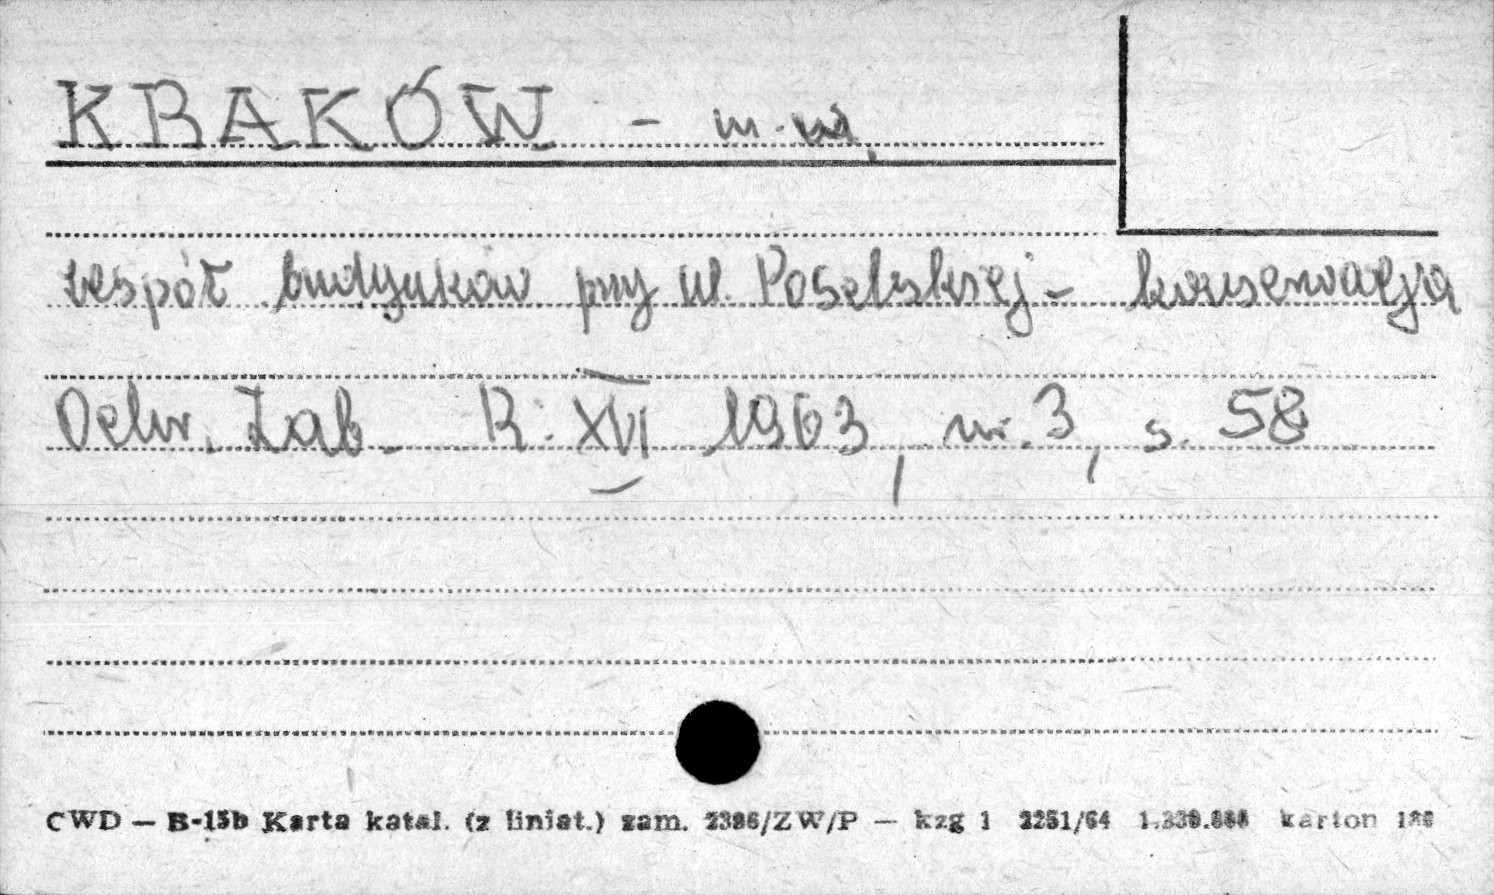 KRAKÓW - m.
zespół budynków przy ul. Poselskiej - konserwacja
Ochr. Zab. R. XVI 1963, nr. 3, s. 58
CWD — B-15b Karta katal. (z liniat.) zam. 2386/ZW/P — kzg 1 2251/64 karton